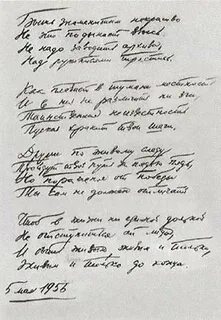 Быть знаменитым некрасиво
Не это подымает ввысь.
Не надо заводить архивы,
Над рукописями трястись.
Как в тумане местность
И в ней не различить ни зги,
Таинственная неизвестность
Пускай хранит твои шаги.
Другие по живому следу
Пройдут твой путь за пядью пядь,
Но пораженья от победы
Ты сам не должен отличать
в жизни ни единой долькой
Не отступаться от лица
И быть живым, живым и только,
Живым и только до конца.
5 мая 1956